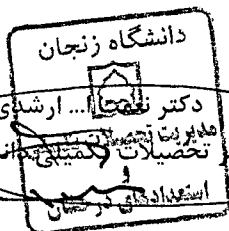 دانشگاه زنجان
دکتر نعمت ا... ارشدی
مدیریت تحصیلات تکمیلی
و
استعدادهای درخشان